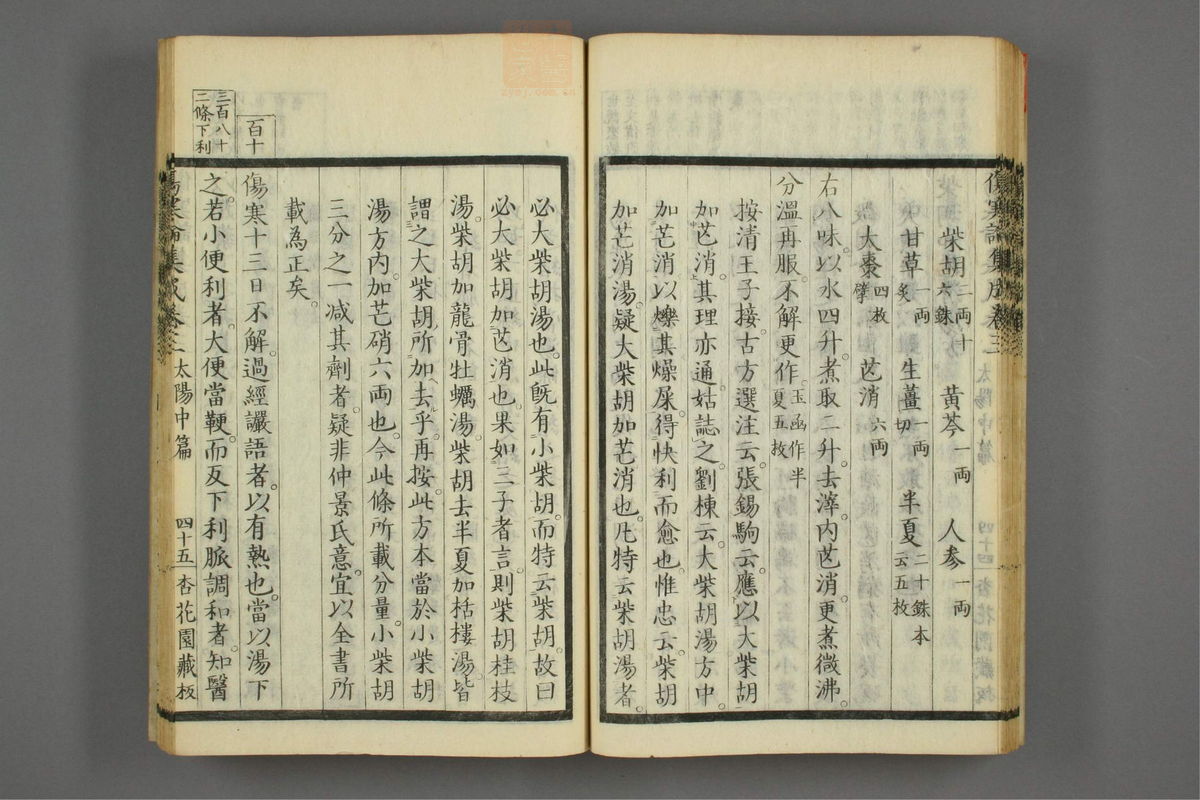 傷寒論集成卷三 太陽中篇 四十四 杏花園藏板
柴胡二両十六銖 黃芩一両 人參一両
甘草一両炙 生薑一両切 半夏二十銖本云五枚
大棗四枚擘 芒消六両
右八味。以水四升。煮取二升。去滓。內芒消。更煮微沸。
分溫再服。不解更作。玉函作半夏五枚
按清王子接。古方選注云。張錫駒云。應以大柴胡
加芒消。其理亦通。姑誌之。劉棟云。大柴胡湯方中。
加芒消以爍其燥屎。得快利而愈也。惟忠云。柴胡
加芒消湯。疑大柴胡加芒消也。凡特云柴胡湯者。
必大柴胡湯也。此旣有小柴胡。而特云柴胡。故曰
必大柴胡加芒消也。果如三子者言。則柴胡桂枝
湯。柴胡加龍骨牡蠣湯。柴胡去半夏加栝樓湯。皆
謂之大柴胡所加去乎。再按。此方本當於小柴胡
湯方內。加芒硝六両也。今此條所載分量。小柴胡
三分之一減其劑者。疑非仲景氏意。宜以全書所
載為正矣。
百十
傷寒十三日不解。過經讝語者。以有熱也。當以湯下
三百八十
二條下利
之。若小便利者。大便當鞕。而反下利。脈調和者。知醫
傷寒論集成卷三 太陽中篇 四十五 杏花園藏板
zysj.com.cn